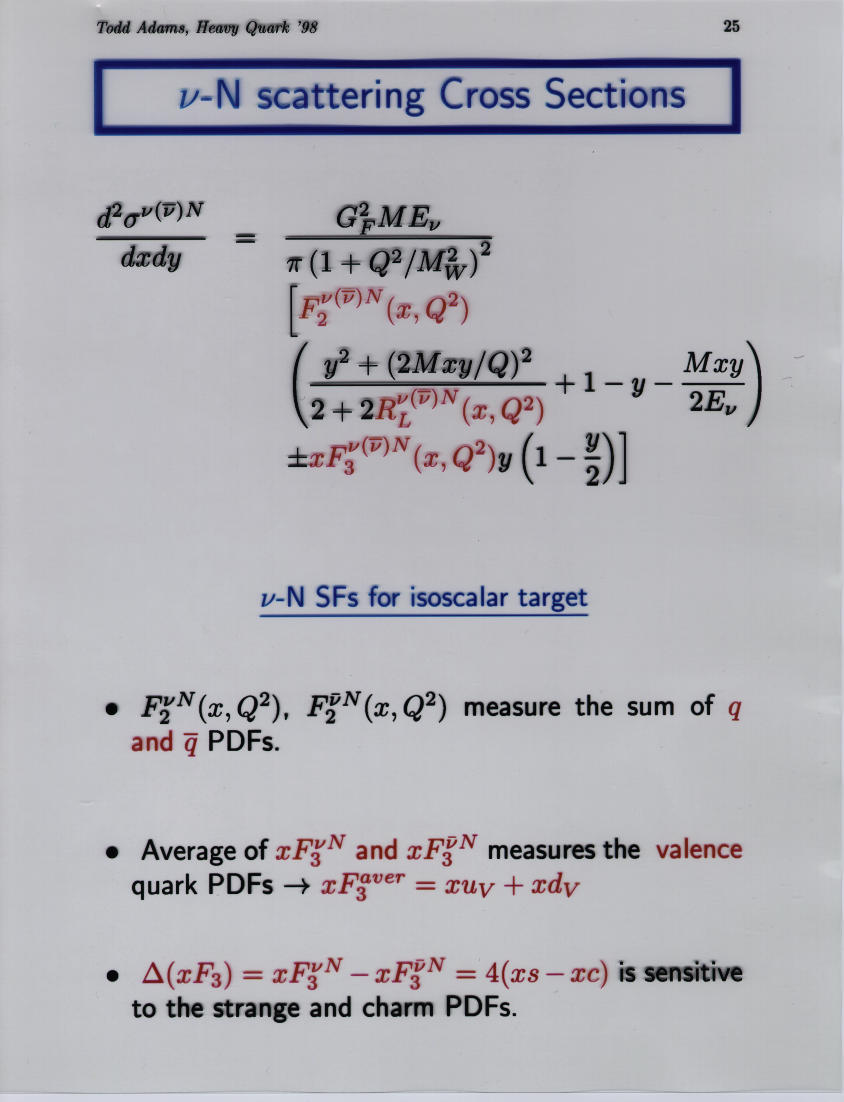 Todd Adams, Heavy Quark '98 25
ν-N scattering Cross Sections
\frac{d^2σ^{ν(\overline{ν})N}}{dxdy} = \frac{G_F^2 M E_ν}{π(1 + Q^2/M_W^2)^2}
[F_2^{ν(\overline{ν})N}(x, Q^2)
(\frac{y^2 + (2Mxy/Q)^2}{2 + 2R_L^{ν(\overline{ν})N}(x, Q^2)} + 1 - y - \frac{Mxy}{2E_ν})
±xF_3^{ν(\overline{ν})N}(x, Q^2)y(1 - \frac{y}{2})]
ν-N SFs for isoscalar target
• F_2^{νN}(x, Q^2), F_2^{\bar{ν}N}(x, Q^2) measure the sum of q
and \overline{q} PDFs.
• Average of xF_3^{νN} and xF_3^{\bar{ν}N} measures the valence
quark PDFs → xF_3^{aver} = xu_V + xd_V
• Δ(xF_3) = xF_3^{νN} - xF_3^{\bar{ν}N} = 4(xs - xc) is sensitive
to the strange and charm PDFs.